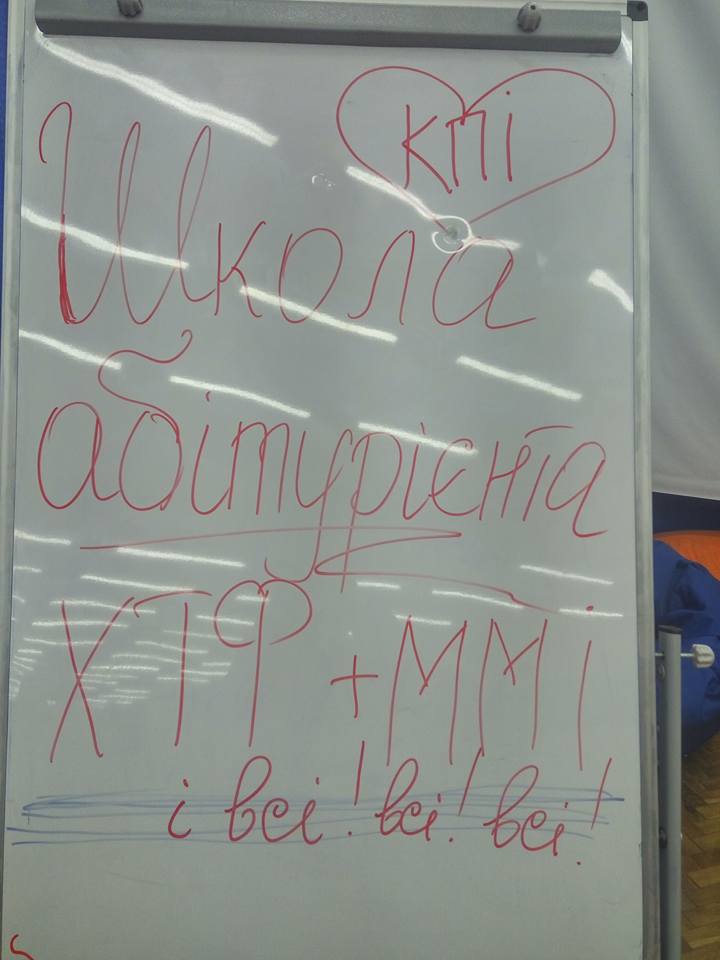 КПІ
Школа
абітурієнта
ХТФ + ММІ
і всі! всі! всі!